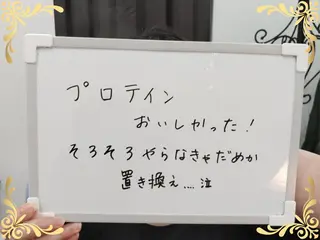 プロテイン
おいしかった!
そろそろやらなきゃだめか
置き換え....注